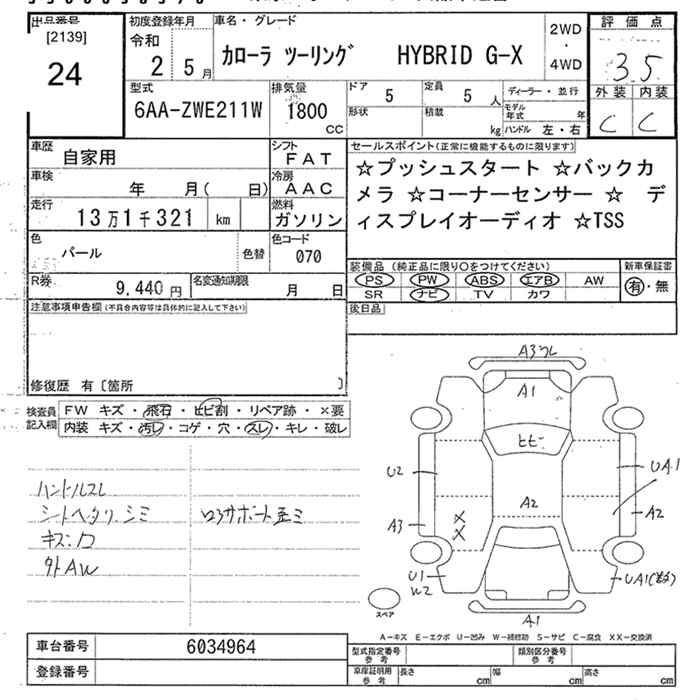 出品番号
[2139]
24
初度登録年月
令和
2 5月
車名・グレード
カローラ ツーリング HYBRID G-X
2WD
・
4WD
評価点
3.5
外装 内装
C C
型式
6AA-ZWE211W
排気量
1800
CC
ドア
5
定員
5 人
形状
積載
kg
ディーラー・並行
モデル年式 年
ハンドル 左・右
車歴
自家用
シフト
FAT
車検
年 月( 日)
冷房
AAC
走行
13万1千321 km
燃料
ガソリン
色
パール
色替
色コード
070
R券
9,440円
名変通知期限
月 日
セールスポイント(正常に機能するものに限ります)
☆プッシュスタート ☆バックカ
メラ ☆コーナーセンサー ☆ デ
ィスプレイオーディオ ☆TSS
装備品 (純正品に限り○をつけてください)
PS PW ABS エアB AW
SR ナビ TV カワ
新車保証書
有・無
後日品
注意事項申告欄(不具合内容等は具体的に記入して下さい)
修復歴 有〔箇所 〕
検査員
記入欄
FW キズ・飛石・ヒビ割・リペア跡・×要
内装 キズ・汚レ・コゲ・穴・スレ・キレ・破レ
ハンドルスレ
シートヘタリ.シミ
キズ.穴
外AW
ロアサポート歪ミ
A3フレ
A1
ヒビ
U2
UA1
A2
A3
A2
×
×
U1
W2
UA1
A1
スペア
A－キズ E－エクボ U－凹み W－補修跡 S－サビ C－腐食 XX－交換済
車台番号
6034964
登録番号
型式指定番号
参考
類別区分番号
参考
車庫証明用
参考
長さ cm
幅 cm
高さ cm